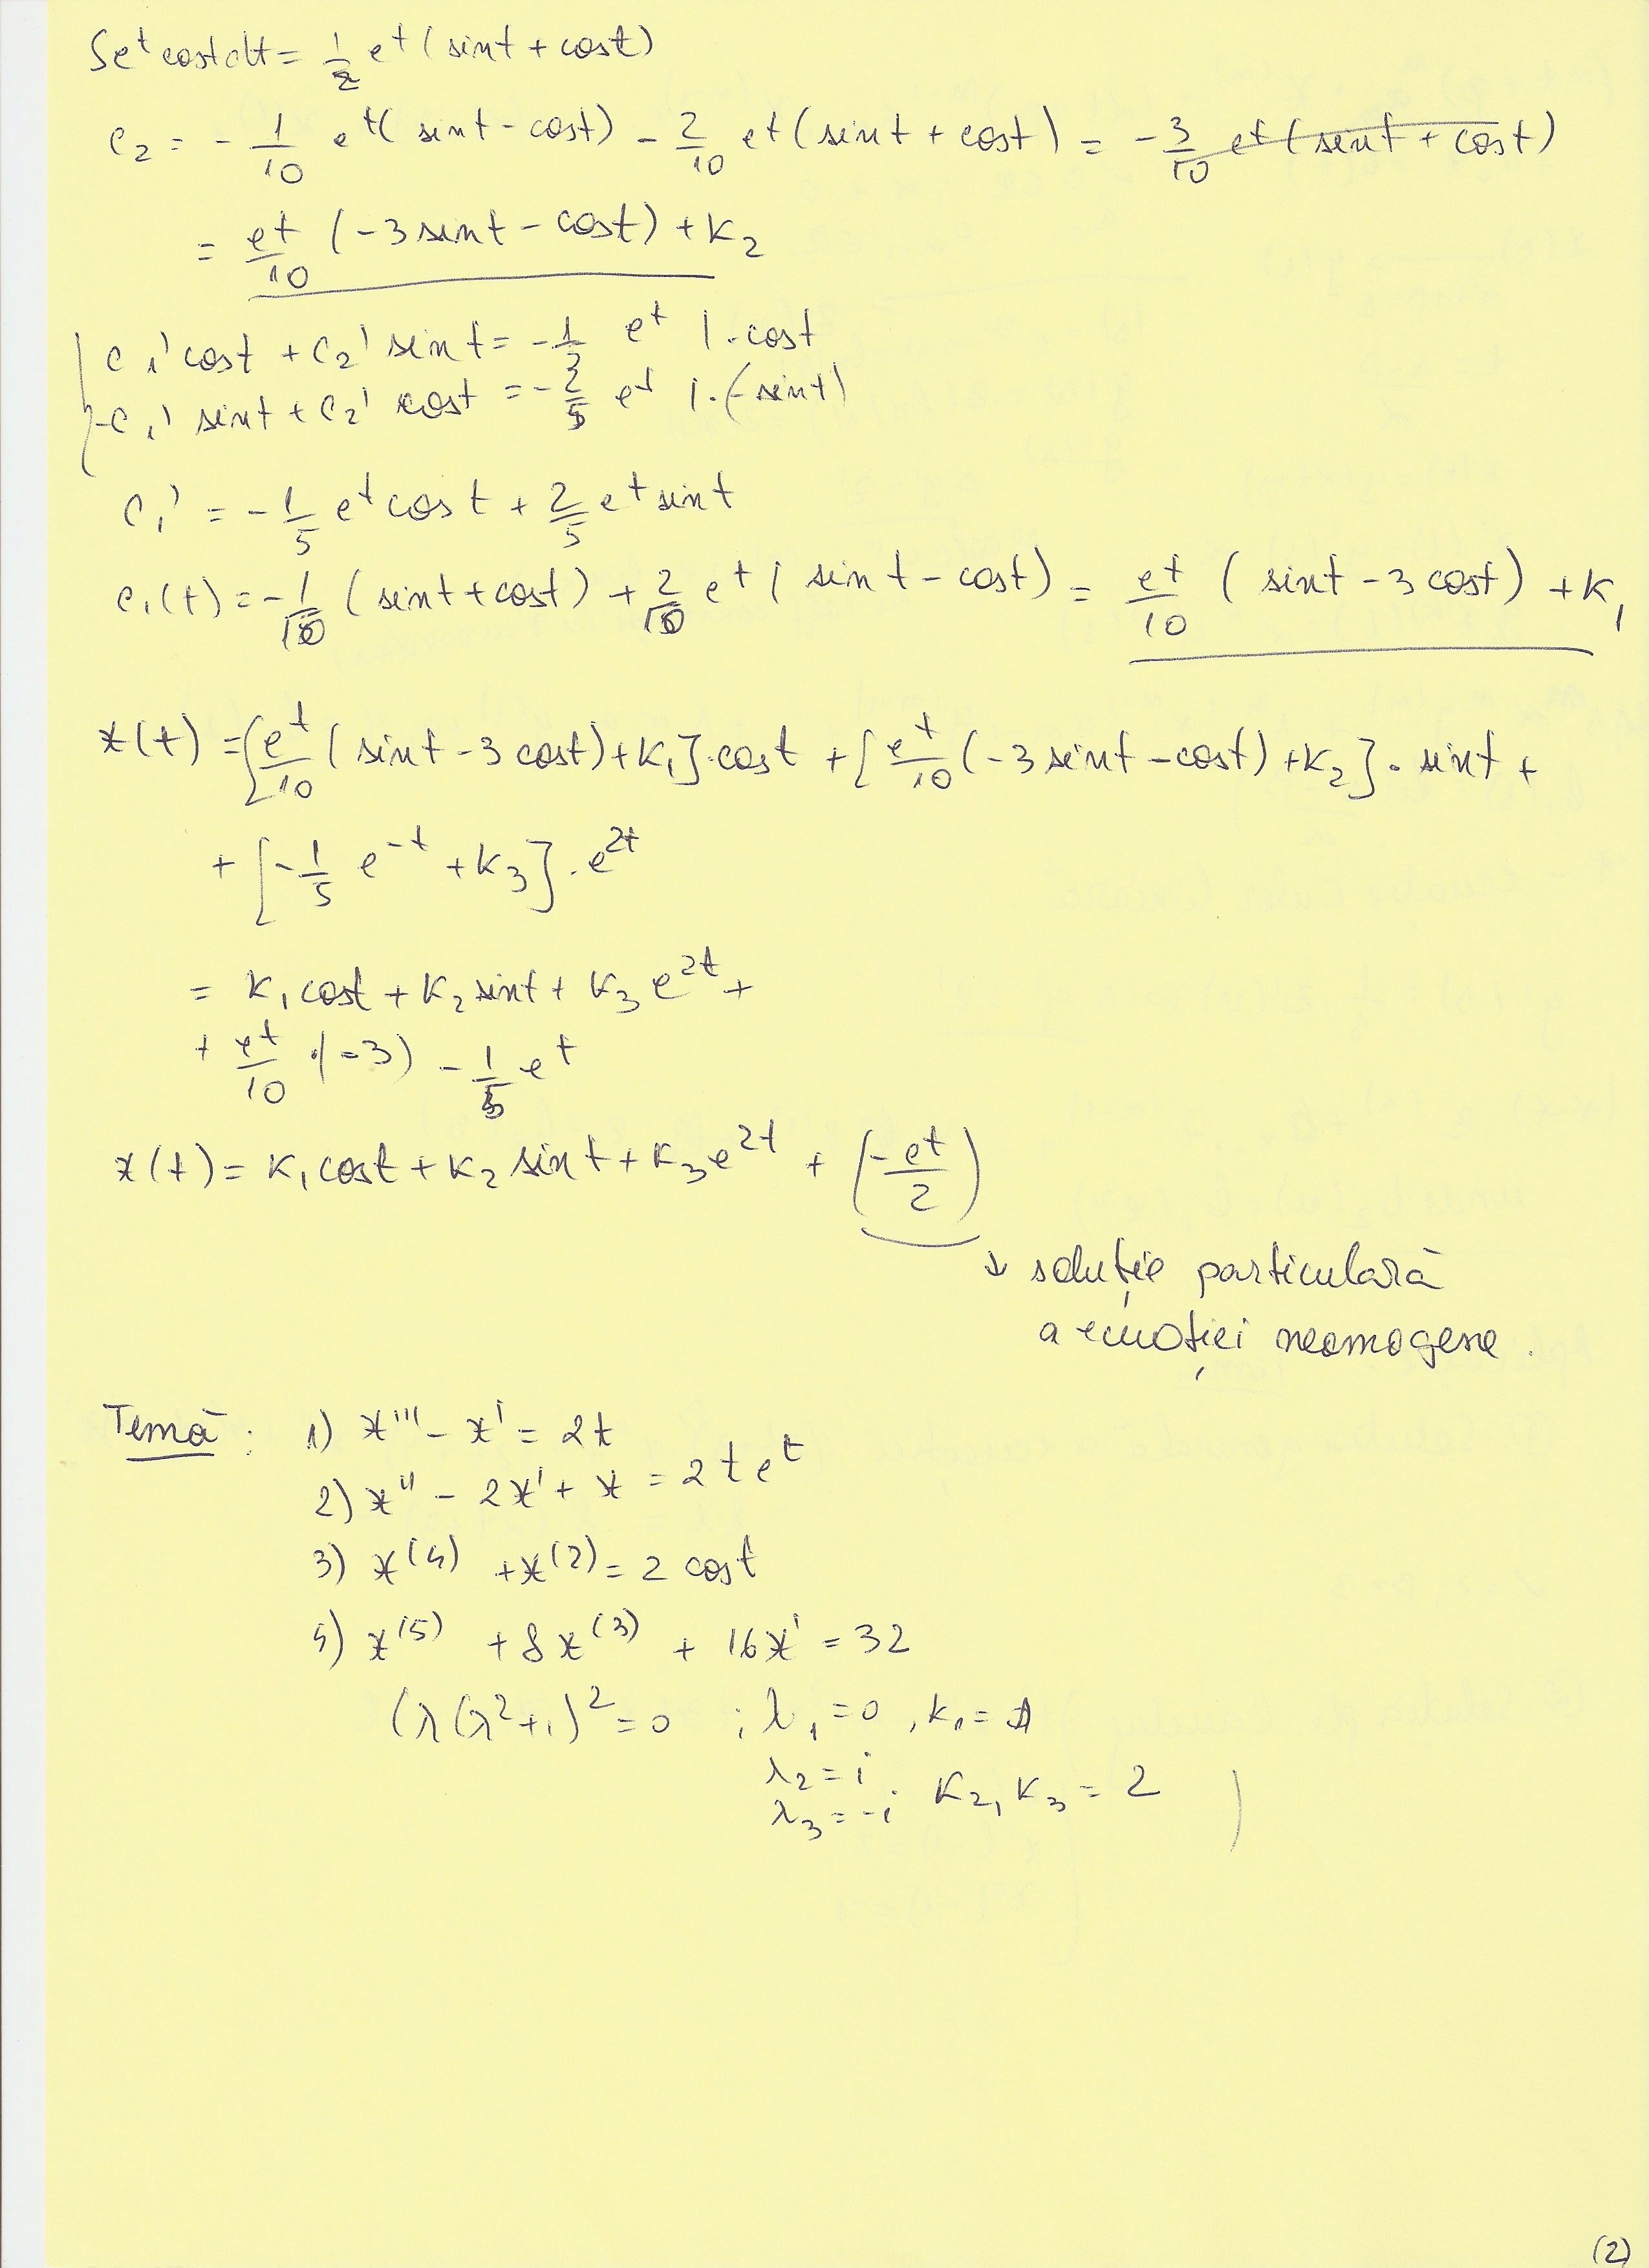 ∫e^t cost dt = 1/2 e^t (sint + cost)
c₂ = - 1/10 e^t( sint - cost) - 2/10 e^t (sint + cost) = - 3/10 e^t (sint + cost)
= e^t/10 (-3 sint - cost) + K₂
{ c₁' cost + c₂' sint = - 1/5 e^t | · cost
-c₁' sint + c₂' cost = - 2/5 e^t | · (-sint)
c₁' = - 1/5 e^t cost + 2/5 e^t sint
c₁(t) = - 1/10 (sint + cost) + 2/10 e^t ( sint - cost) = e^t/10 ( sint - 3 cost) + K₁
x(t) = [e^t/10 ( sint - 3 cost) + K₁] · cost + [e^t/10 (-3 sint - cost) + K₂] · sint +
+ [- 1/5 e^-t + K₃] · e^2t
= K₁ cost + K₂ sint + K₃ e^2t +
+ e^t/10 · (-3) - 1/5 e^t
x(t) = K₁ cost + K₂ sint + K₃ e^2t + (- e^t/2)
↓ soluție particulară
a ecuației neomogene.
Temă: 1) x''' - x' = 2t
2) x'' - 2x' + x = 2 t e^t
3) x^(4) + x^(2) = 2 cost
4) x^(5) + 8x^(3) + 16x' = 32
(λ(λ²+1)² = 0 ; λ₁ = 0 , K₁ = 1
λ₂ = i
λ₃ = -i ; K₂, K₃ = 2 )
(2)